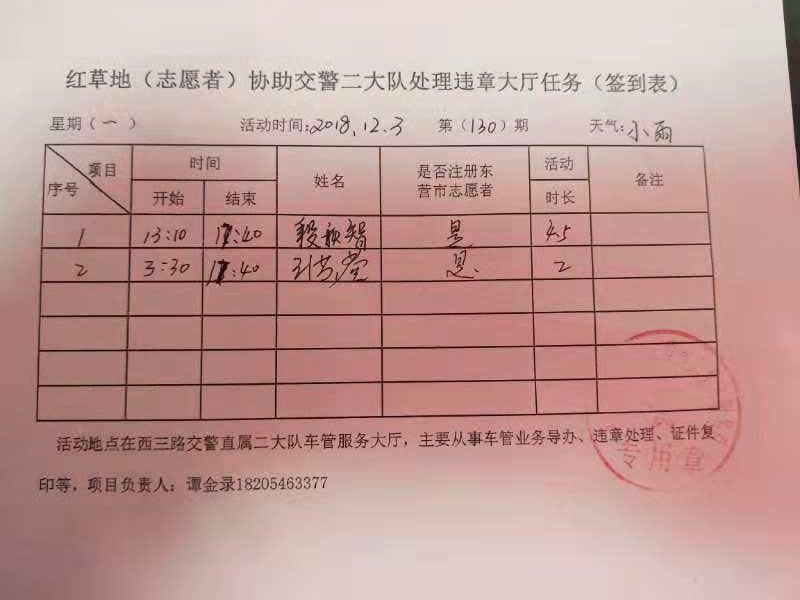 红草地（志愿者）协助交警二大队处理违章大厅任务（签到表）
星期（一） 活动时间:2018.12.3 第（130）期 天气:小雨
项目 序号 时间 姓名 是否注册东营市志愿者 活动时长 备注
开始 结束
1 13:10 17:40 段颖智 是 4.5
2 3:30 17:40 是. 2
活动地点在西三路交警直属二大队车管服务大厅，主要从事车管业务导办、违章处理、证件复
印等，项目负责人：谭金录18205463377
专用章